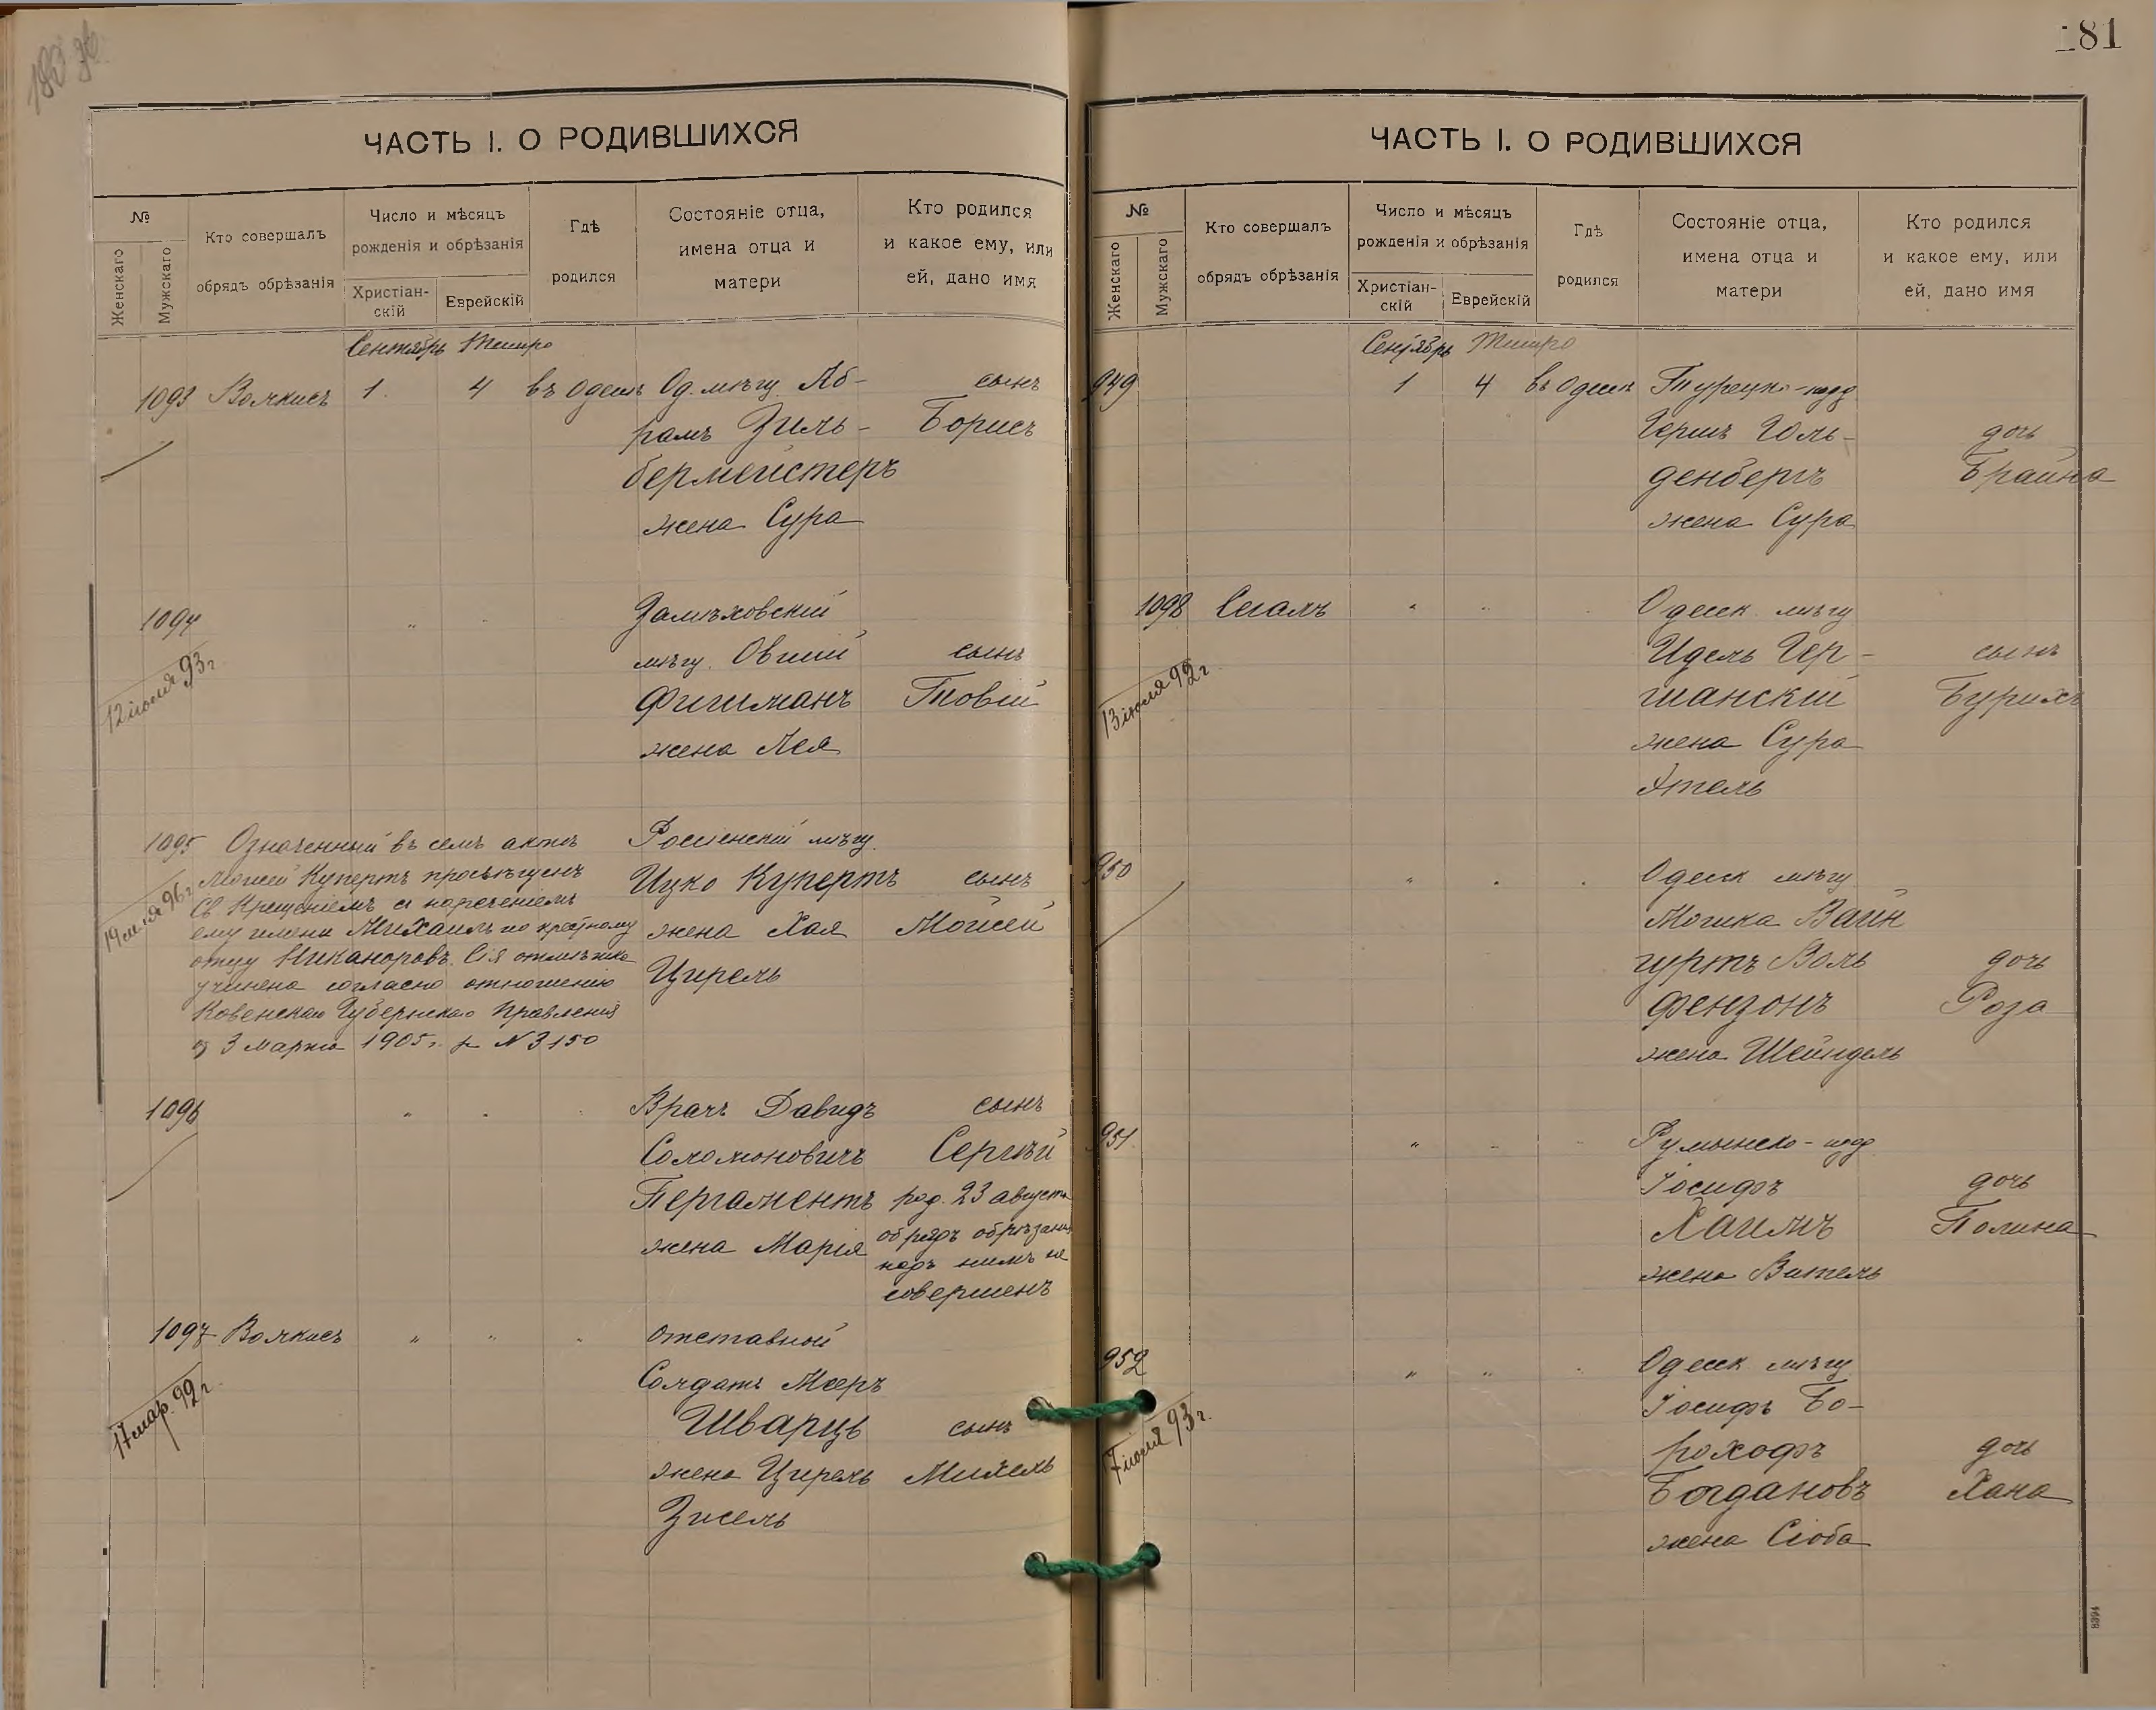 180 об
ЧАСТЬ I. О РОДИВШИХСЯ
№
Женскаго
Мужскаго
Кто совершалъ
обрядъ обрѣзанія
Число и мѣсяцъ
рожденія и обрѣзанія
Христіан-
скій
Еврейскій
Гдѣ
родился
Состояніе отца,
имена отца и
матери
Кто родился
и какое ему, или
ей, дано имя
Сентябрь Тишри
1093 Волкисъ 1 4 въ Одессѣ Од. мѣщ. Аб-
рамъ Зиль-
бермейстеръ
жена Сура
сынъ
Борисъ
1094 " "
12 іюля 93 г.
Замѣховскій
мѣщ. Овшій
Фишманъ
жена Лея
сынъ
Товій
1095 Означенный въ семъ актѣ
Мойсей Купертъ просвѣщенъ
Св Крещеніемъ съ нареченіемъ
ему имени Михаилъ по крестному
отцу Никаноровъ. Сія отмѣтка
учинена согласно отношенію
Ковенскаго Губернскаго Правленія
отъ 3 марта 1905 г. за N 3150
96 г.
Россіенскій мѣщ.
Ицко Купертъ
жена Хая
Цирель
сынъ
Мойсей
1096 " "
Врачъ Давидъ
Соломоновичъ
Пергаментъ
жена Марія
сынъ
Сергѣй
род. 23 августа
обрядъ обрѣзанія
надъ нимъ не
совершенъ
1097 Волкисъ " " "
17 мар. 99 г.
отставной
Солдатъ Мееръ
Шварцъ
жена Цирель
Зисель
сынъ
Михель
181
ЧАСТЬ I. О РОДИВШИХСЯ
№
Женскаго
Мужскаго
Кто совершалъ
обрядъ обрѣзанія
Число и мѣсяцъ
рожденія и обрѣзанія
Христіан-
скій
Еврейскій
Гдѣ
родился
Состояніе отца,
имена отца и
матери
Кто родился
и какое ему, или
ей, дано имя
Сентябрь Тишри
949 1 4 въ Одессѣ Турецко-подд
Гершъ Голь-
денбергъ
жена Сура
дочь
Брайна
1098 Сегалъ " " "
13 іюля 99 г.
Одесск. мѣщ
Идель Гер-
шанскій
жена Сура
Этель
сынъ
Бурихъ
950 " " "
Одесск мѣщ
Мошка Вайн
гуртъ Воль
фензонъ
жена Шейндель
дочь
Роза
951 " " "
Румынско-подд
Іосифъ
Хаимъ
жена Витель
дочь
Полина
952 " " "
7 іюля 93 г.
Одесск мѣщ
Іосифъ Бо-
роховъ
Богдановъ
жена Сіоба
дочь
Хана
8394